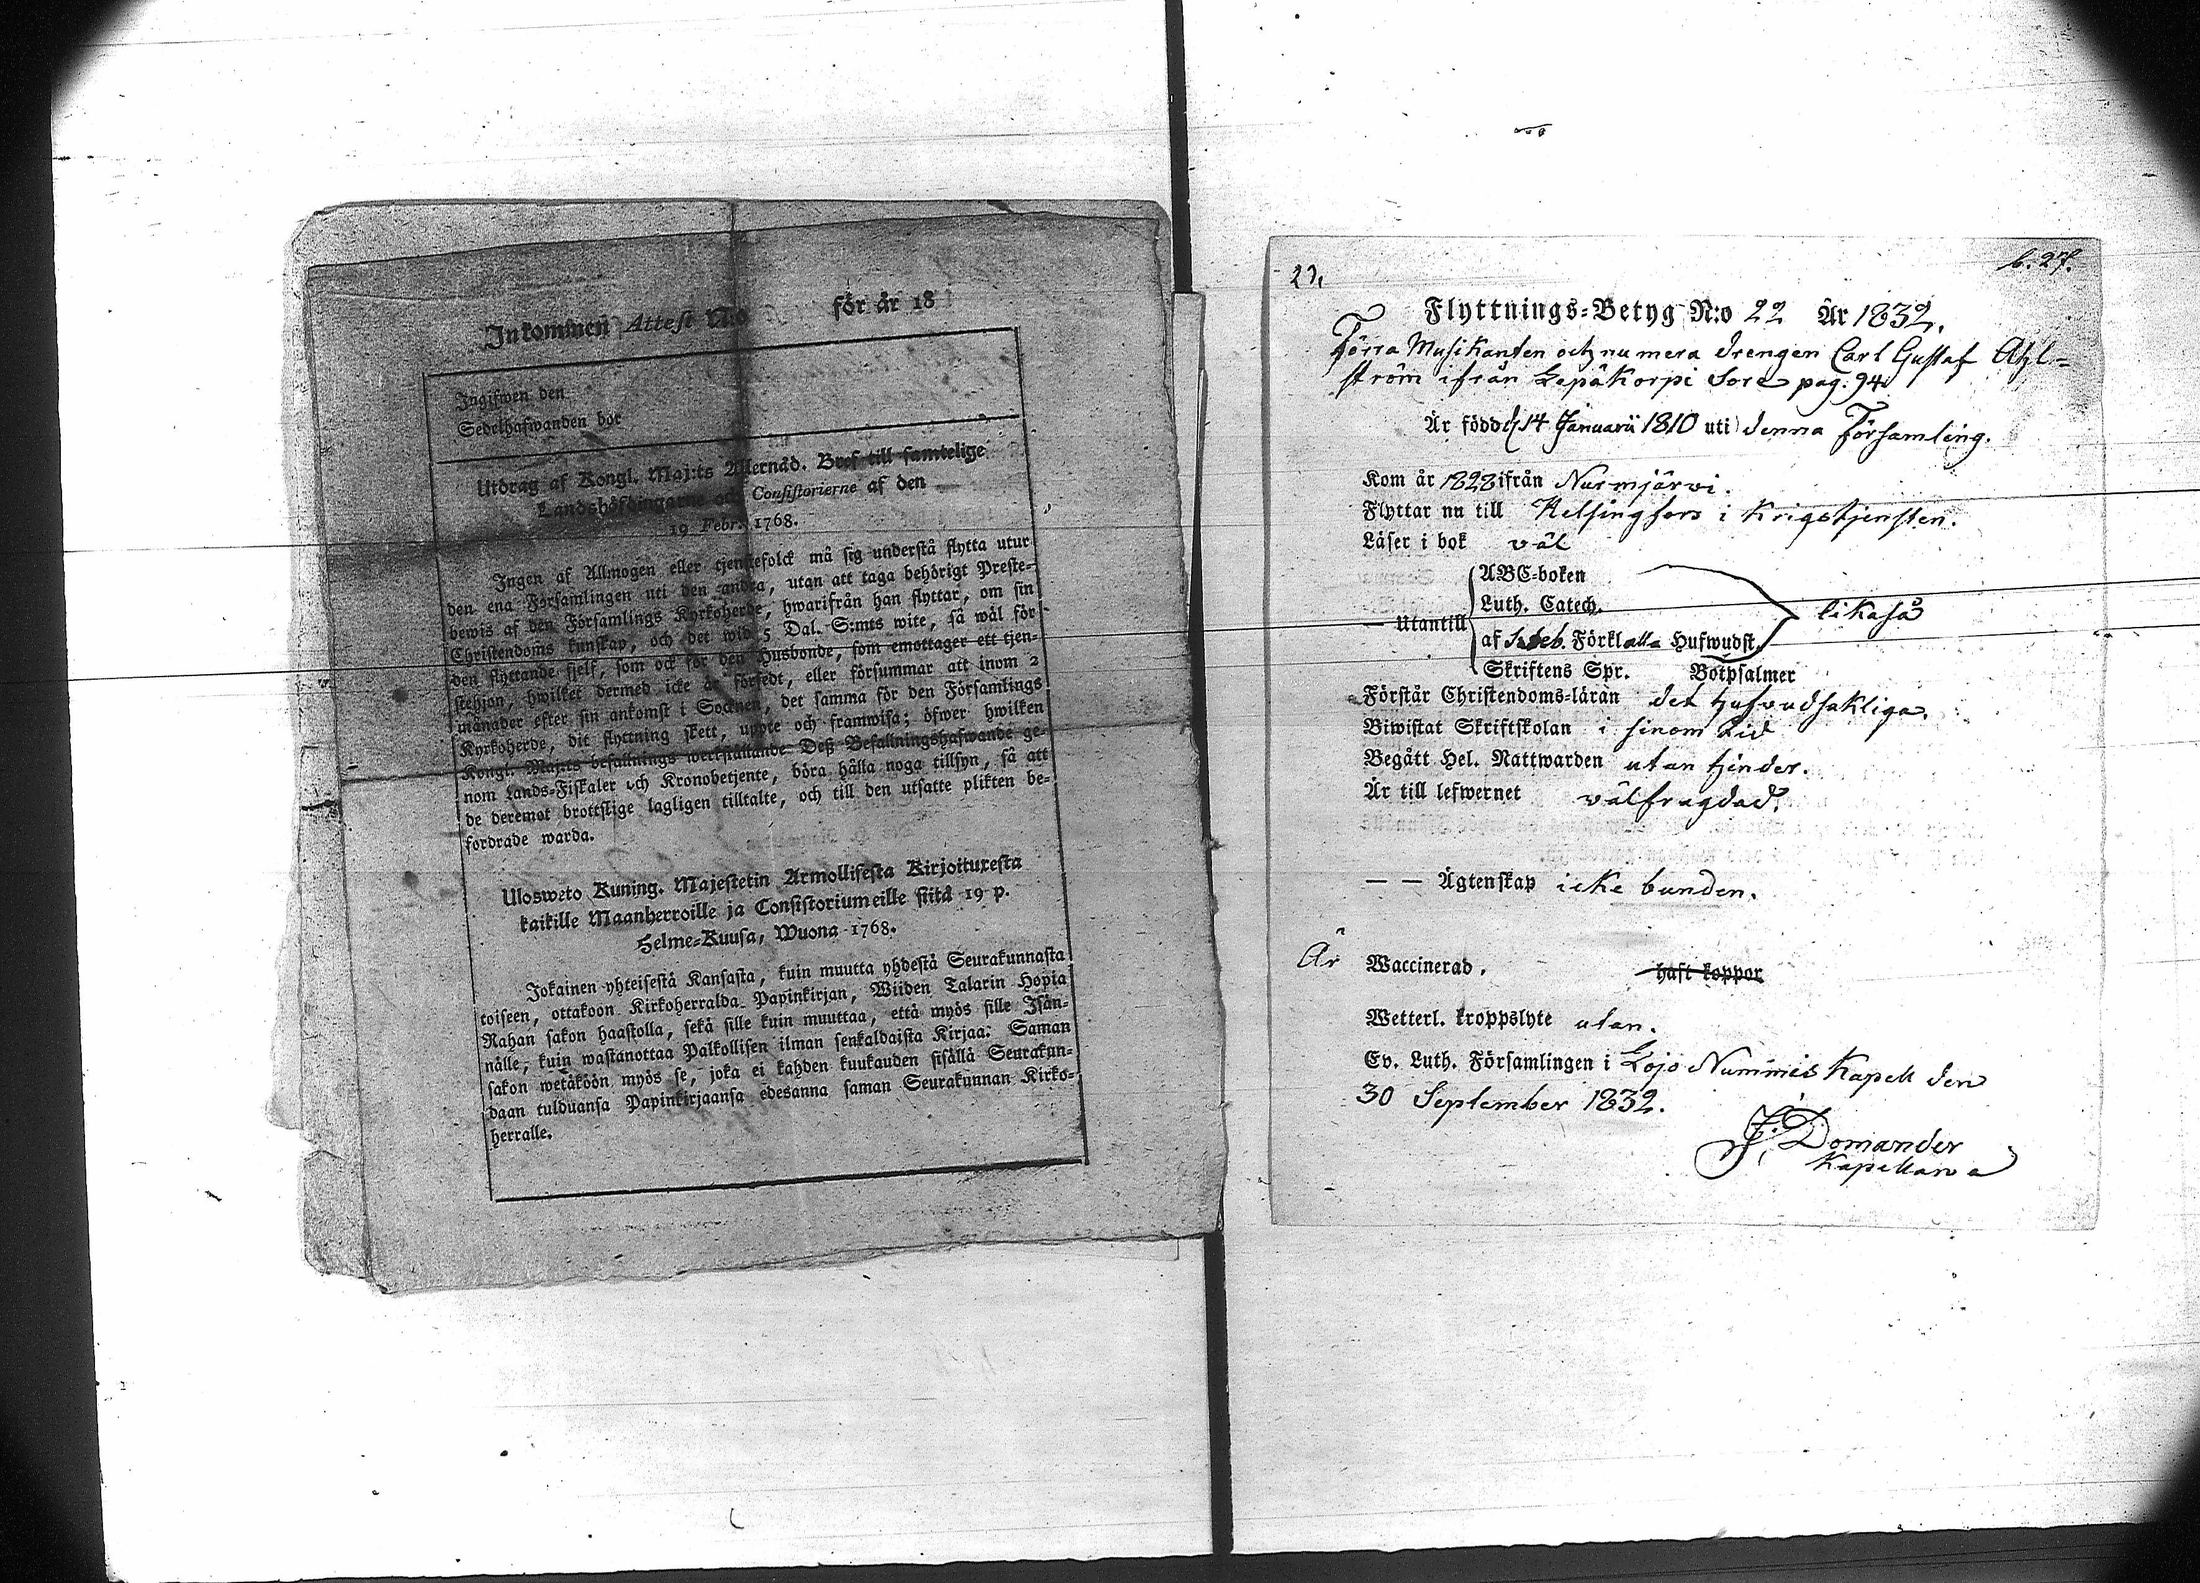 Inkommen Attest N:o för år 18
Ingifwen den
Sedelhafwanden bor
Utdrag af Kongl. Maj:ts Allernåd. Bref till samtelige
Landshöfdingarne och Consistorierne af den
19 Febr. 1768.
Ingen af Allmogen eller tjenstefolck må sig understå flytta utur
den ena Församlingen uti den andra, utan att taga behörigt Preste-
bewis af den Församlings Kyrkoherde, hwarifrån han flyttar, om sin
Christendoms kunskap, och det wid 5 Dal. S:mts wite, så wäl för
den flyttande sjelf, som ock för den Husbonde, som emottager ett tjen-
stehjon, hwilket dermed icke är försedt, eller försummar att inom 2
månader efter sin ankomst i Socknen, det samma för den Församlings
Kyrkoherde, dit flyttning skett, uppte och framwisa; öfwer hwilken
Kongl. Maj:ts befallnings werkställande Deß Befallningshafwande ge-
nom Lands-Fiskaler och Kronobetjente, böra hålla noga tillsyn, så att
de deremot brottslige lagligen tilltalte, och till den utsatte plikten be-
fordrade warda.
Ulosweto Kuning. Majestetin Armollisesta Kirjoituxesta
kaikille Maanherroille ja Consistoriumeille siitä 19 p.
Helme-Kuusa, Wuona 1768.
Jokainen yhteisestä Kansasta, kuin muutta yhdestä Seurakunnasta
toiseen, ottakoon Kirkoherralda Papinkirjan, Wiiden Talarin Hopia
Rahan sakon haastolla, sekä sille kuin muuttaa, että myös sille Isän-
nälle, kuin wastanottaa Palkollisen ilman senkaldaista Kirjaa: Saman
sakon wetäköön myös se, joka ei kahden kuukauden sisällä Seurakun-
daan tulduansa Papinkirjaansa edesanna saman Seurakunnan Kirko-
herralle.
b. 27.
Flyttnings-Betyg N:o 22 År 1832.
Förra Musikanten och nu mera drengen Carl Gustaf Ahl-
ström ifrån Lepäkorpi Sore pag. 94
Är född d. 14 Januarii 1810 uti denna Församling.
Kom år 1828 ifrån Nurmjärvi.
Flyttar nu till Helsingfors i Krigstjensten.
Läser i bok väl
ABC-boken
Luth. Catech. likaså
— Utantill
af Sebeb. Förkl alla Hufwudst.
Skriftens Spr. Botpsalmer
Förstår Christendoms-läran det hufvudsakliga.
Biwistat Skriftskolan i sinom tid
Begått Hel. Nattwarden utan hinder.
Är till lefwernet välfragdad.
— — Ägtenskap icke bunden.
Är Waccinerad. haft koppor
Wetterl. kroppslyte utan.
Ev. Luth. Församlingen i Lojo Nummis Kapell den
30 September 1832.
J. Domander
Kapellan